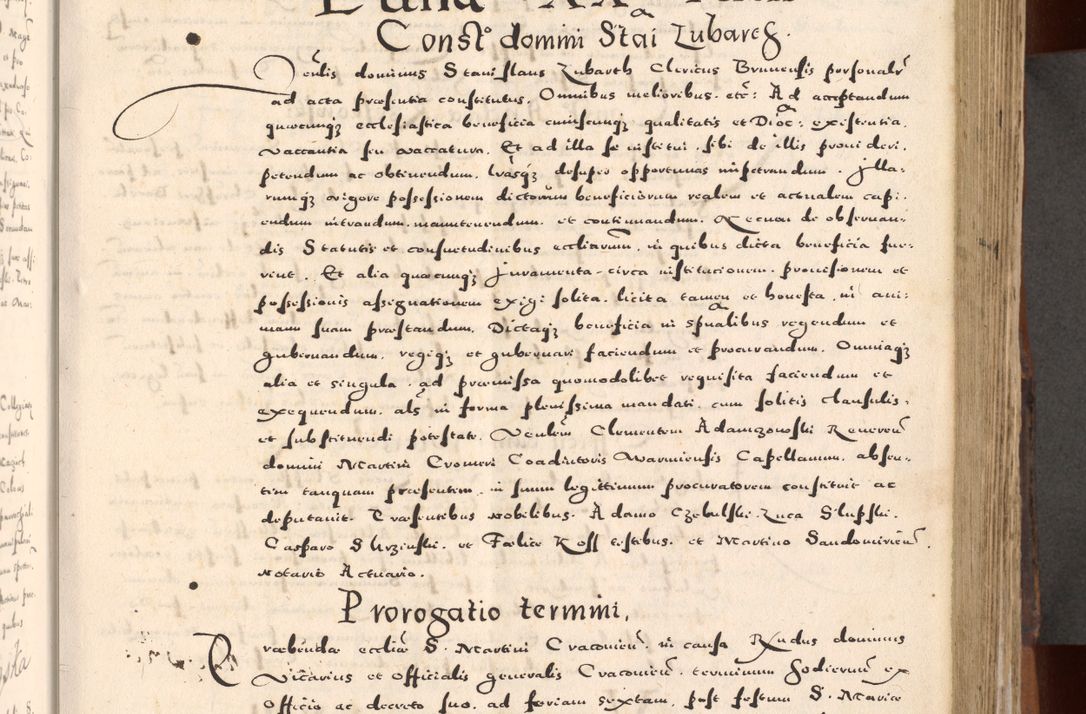 Const° domini Stai Lubareß.
Venłis dominus Stanislaus Lubarth Clericus Brunensis personalr̃
ad acta præsentia constitutus, Omnibus melioribus. etc: Ad acceptandum
quæcunqȝ ecclesiastica beneficia cuiuscunqȝ qualitatis et Dioc: existentia,
vaccantia seu vaccatura, Et ad illa se institui, sibi de illis prouideri,
petendum ac obtinendum, lrãsqȝ desuper opportunas impetrandum. Illa-
rumqȝ vigore possessionem dictorum beneficiorum realem et actualem capi-
endum intrandum, manutenendum, et continuandum. Necnon de obseruan-
dis Statutis et consuetudinibus eccliarum, in quibus dicta beneficia fue-
rint. Et alia quæcunqȝ Juramenta circa institutionem, prouisionem et
possessionis assignationem exigi solita, licita tamen et honesta, in ani-
mam suam præstandum, Dictaqȝ beneficia in spũalibus regendum et
gubernandum, regiqȝ et gubernari faciendum et procurandum, Omniaqȝ
alia et singula, ad præmissa quomodolibet requisita faciendum et
exequendum, als in forma plenissima mandati, cum solitis clausulis
et substituendi potestate, Venłem Clementem Adamczowski Reueren̄
domini Martini Cromeri Coadiutoris Warmiensis Capellanum, absen-
tem tanquam præsentem, in suum legittimum procuratorem constituit ac
deputauit. Præsentibus nobilibus. Adamo Czebulski, Luca Slupski,
Casparo Skrzinski, et Fælice Koss testibus, et Martino Sandomirien̄,
Notario Actuario.
Prorogatio termini,
Præbendæ eccliæ S. Martini Cracouien̄, in causa Rñdus dominus
Vicarius et Officialis generalis Cracouien̄, terminum hodiernũ ex
Officio ac decreto suo, ad feriam sextam, post festum S. Mariæ